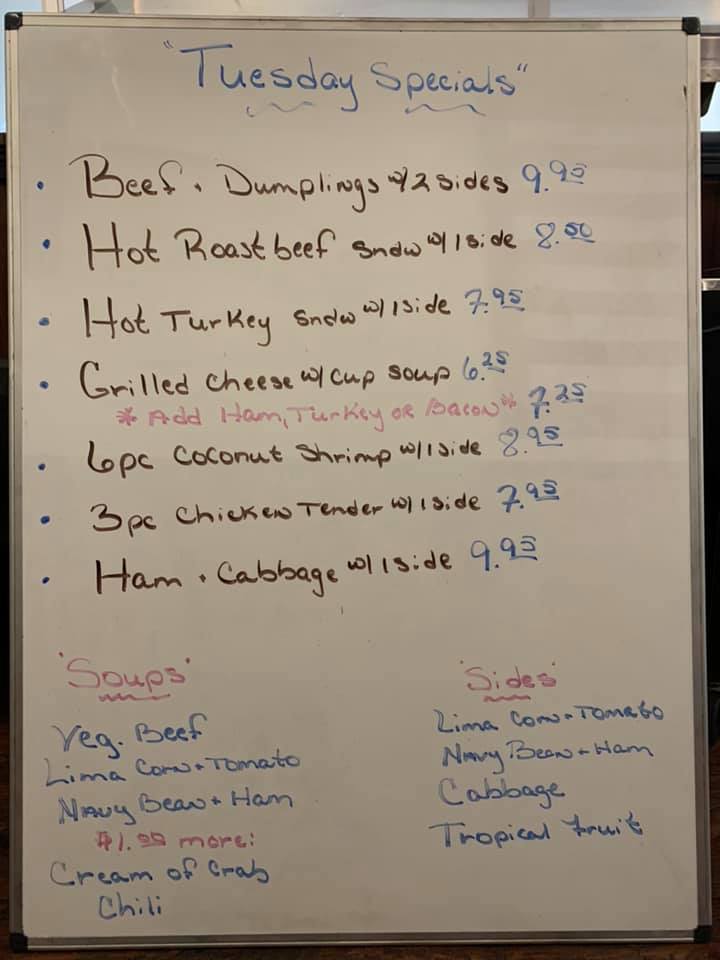 "Tuesday Specials"
• Beef + Dumplings w/2 sides 9.95
• Hot Roast beef sndw w/1 side 8.50
• Hot Turkey sndw w/1side 7.95
• Grilled cheese w/ cup soup 6.25
* Add Ham, Turkey or Bacon* 7.25
• 6pc Coconut Shrimp w/1side 8.95
• 3pc Chicken Tender w/1side 7.95
• Ham + Cabbage w/1side 9.95
'Soups'
Veg. Beef
Lima Corn + Tomato
Navy Bean + Ham
$1.99 more:
Cream of Crab
Chili
'Sides'
Lima Corn + Tomato
Navy Bean + Ham
Cabbage
Tropical Fruit